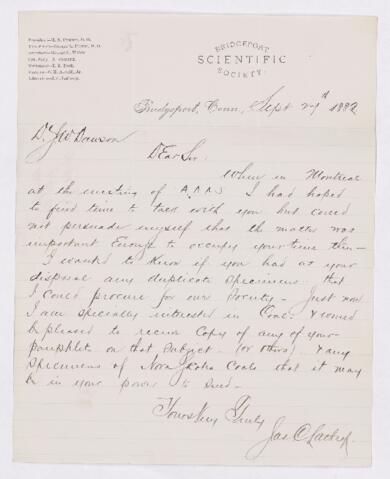 BRIDGEPORT
SCIENTIFIC
SOCIETY.
Bridgeport, Conn., Sept 27th 1882
Dr J W Dawson
Dear Sir
When in Montreal
at the meeting of A.A.A.S I had hoped
to find time to talk with you but could
not persuade myself that the matter was
important Enough to occupy your time then—
I wanted to Know if you had at your
disposal any duplicate specimens that
I could procure for our Society— Just now
I am specially interested in Coal & would
be pleased to receive Copy of any of your
pamphlets on that subject— (or others) & any
Specimens of Nova Scotia Coals that it may
be in your power to send—
Yours Very Truly
Jas C